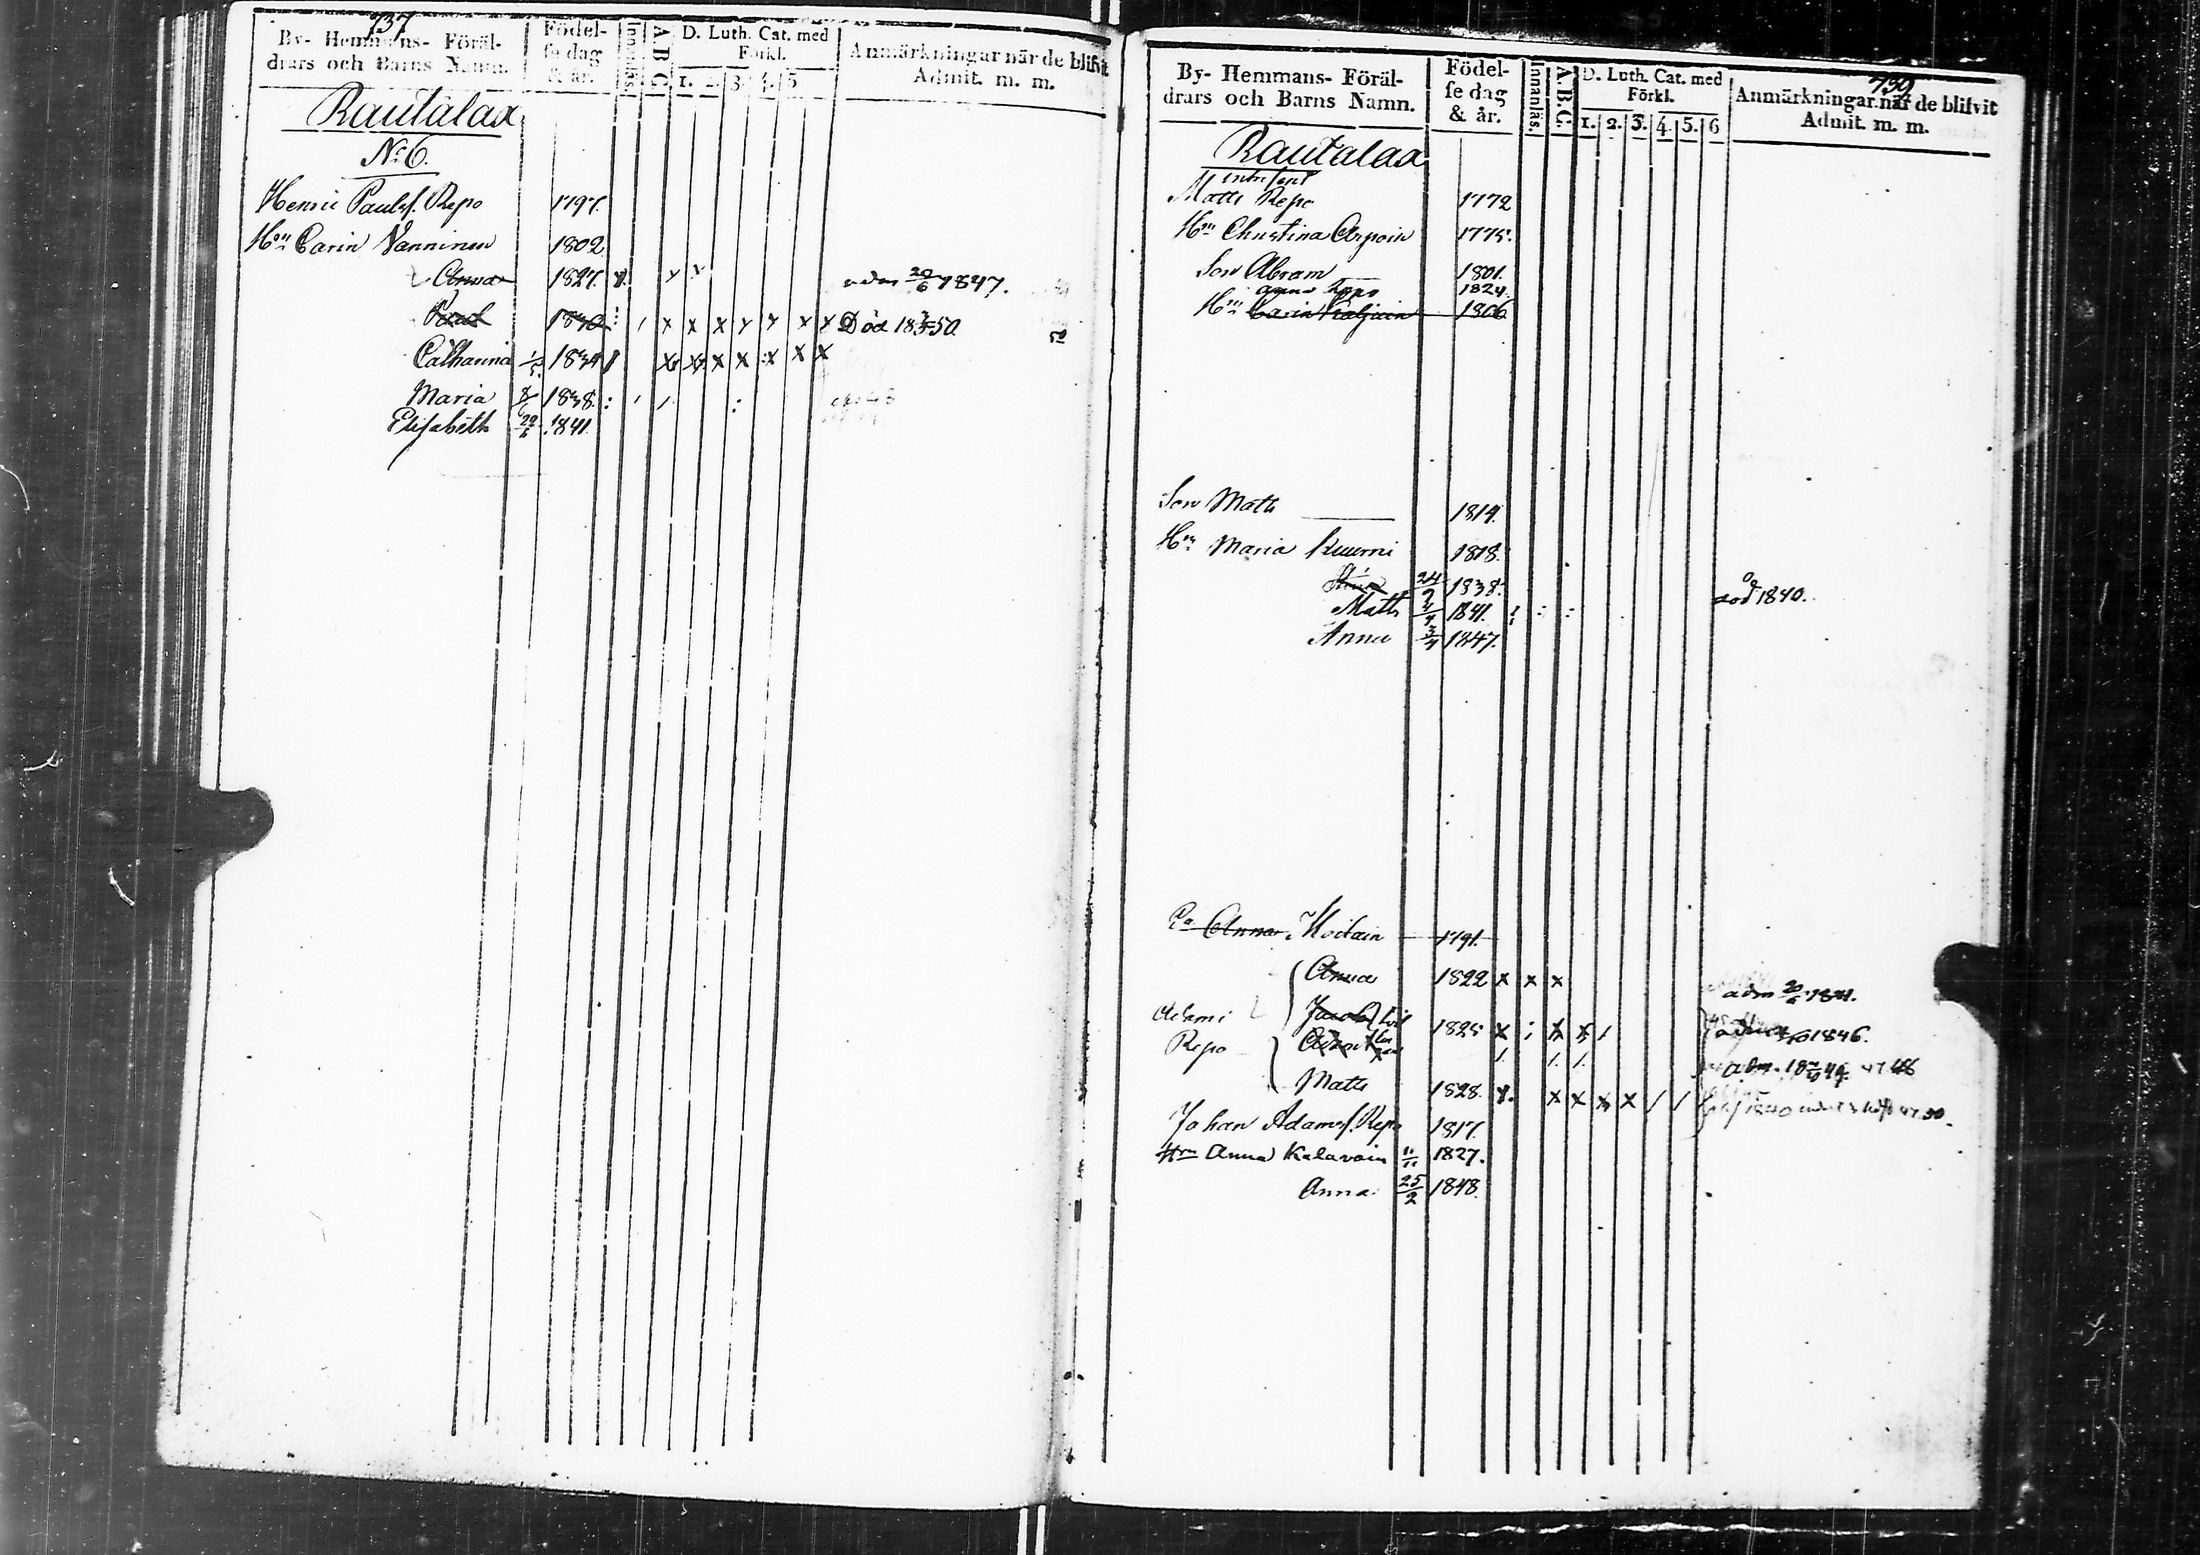 737
By- Hemmans- Föräl-
drars och Barns Namn.
Födel-
se dag
& år.
Innanläs.
A.B.C.
D. Luth. Cat. med
Förkl.
1. 2. 3. 4. 5
Anmärkningar när de blifvit
Admit. m. m.
Rautalax
No 6.
Henric Paulsf. Repo 1797.
Hun Carin Nanninen 1802
Anna 1827. x x x adm 20/6 1847.
Paul 1830 x x x x x x x Död 18 50.
Catharina 1/5 1834 x x x x x x x
Maria 1838.
Elisabeth 1841.
739
By- Hemmans- Föräl-
drars och Barns Namn.
Födel-
se dag
& år.
Innanläs.
A.B.C.
D. Luth. Cat. med
Förkl.
1. 2. 3. 4 5. 6
Anmärkningar när de blifvit
Admit. m. m.
Rautalax
Matts Repo 1772
Hun Christina Arpoin 1775.
Son Abram 1801.
Anna Repo 1824.
Hun Carin 1806
Son Matts 1819.
Hun Maria Kuurni 1818.
24/9 1838. död 1840.
Matts 1841.
Anna 1847.
Anna Moilain 1791.
Anna 1822 x x x adm 20/6 1841.
Adami Jacob 1825 x x x 1846.
Repo adm.
Matts 1828. x x x x x
Johan Adamsf. Repo 1817.
Hun Anna Kalavain 11/11 1827.
Anna 25/2 1848.